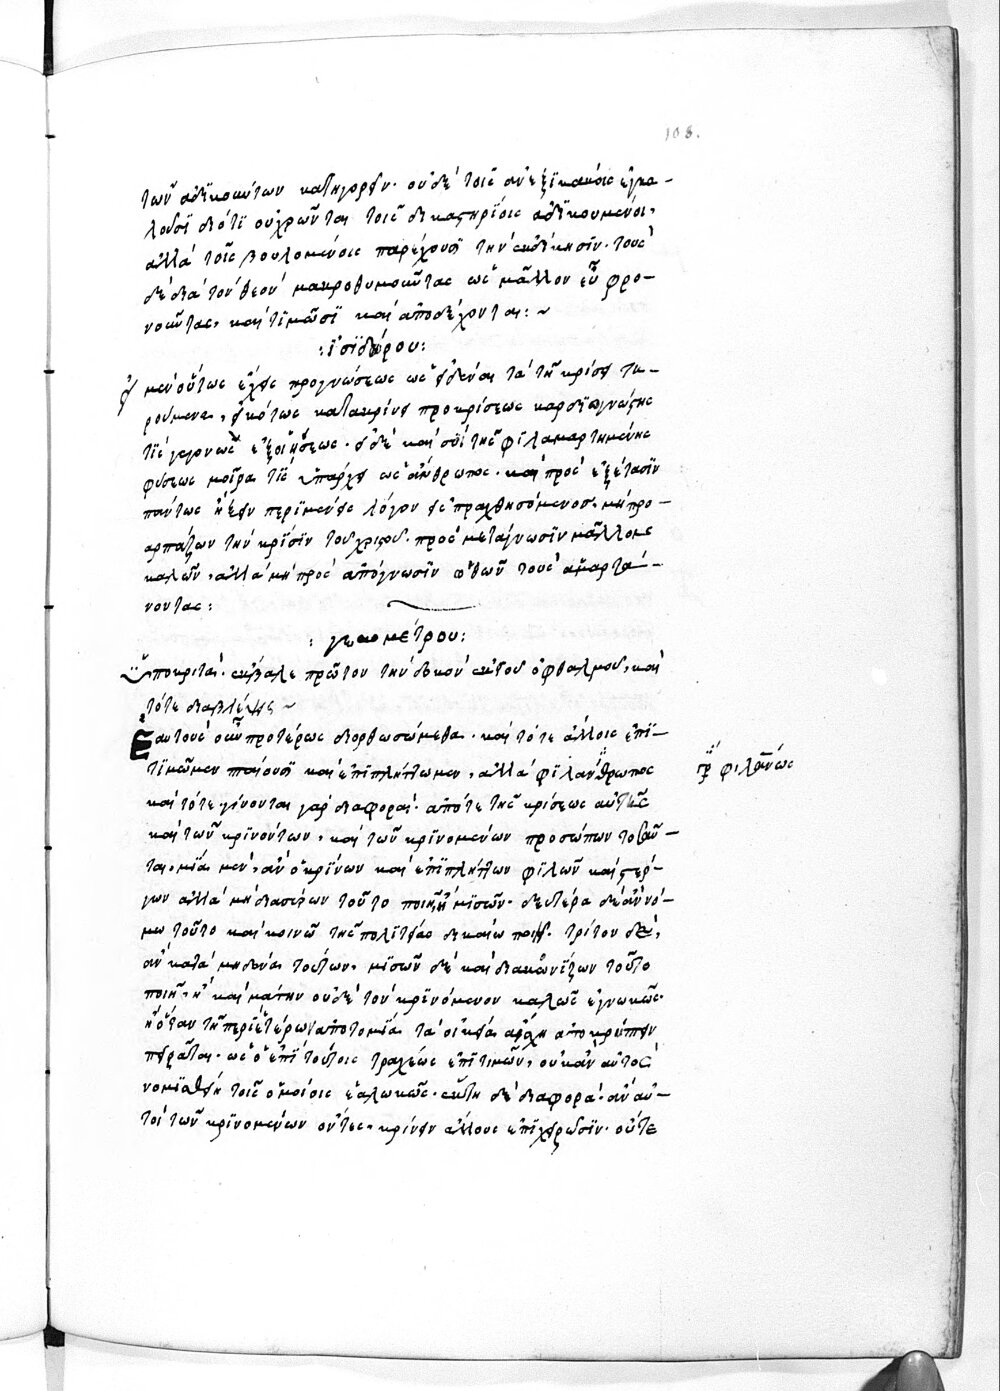 108.
τῶν ἀδϊκούντων κατηγορεῖν· οὐδὲ τοῖς ἀνεξϊκάκοις ἐγκα-
λοῦσϊ διότϊ οὐ χρῶνται τοῖς δικαστηρίοις ἀδϊκούμενοι,
ἀλλὰ τοῖς βουλομένοις παρέχουσϊ τὴν ἐκδίκησϊν· τοὺς
δὲ διὰ τὸν θεὸν μακροθυμοῦντας ὡς μᾶλλον εὖ φρο-
νοῦντας, καὶ τϊμῶσϊ καὶ ἀποδέχονται: ~
:ἰσϊδώρου:
εἰ μὲν οὕτως ἔχεις προγνώσεως ὡς εἰδέναι τὰ τῇ κρίσει τη-
ρούμενα, εἰκότως κατακρίνεις πρὸ κρίσεως καρδϊογνώστης
τϊς γεγονὼς ἐξ οἰήσεως· εἰ δὲ καὶ σὺ τῆς φϊλαμαρτήμονος
φύσεως μοῖρά τϊς ὑπάρχεις ὡς ἄνθρωπος· καὶ πρὸς ἐξέτασϊν
πάντως ἥξειν περϊμένεις λόγον εἰσπραχθησόμενος, μὴ προ-
αρπάζων τὴν κρίσϊν τοῦ χριστοῦ· πρὸς μετάγνωσϊν μᾶλλον ἐκ-
καλῶν, ἀλλὰ μὴ πρὸς ἀπόγνωσϊν ὠθῶν τοὺς ἁμαρτά-
νοντας:
:γεωμέτρου:
Ὑποκριτά· ἔκβαλε πρῶτον τὴν δοκὸν ἐκ τοῦ ὀφθαλμοῦ, καὶ
τότε διαβλέψεις ~
Ἑαυτοὺς οὖν προτέρως διορθωσώμεθα· καὶ τότε ἄλλοις ἐπϊ-
τϊμῶμεν παίουσϊ καὶ ἐπϊπλήττωμεν, ἀλλὰ φϊλανθρώπως
γρ φιλανως
καὶ τότε· γίνονται γὰρ διαφοραὶ· ἀπό τε τῆς κρίσεως αὐτῆς
καὶ τῶν κρϊνόντων, καὶ τῶν κρϊνομένων προσώπων τοιαῦ-
ται, μϊὰ μὲν, ἂν ὁ κρίνων καὶ ἐπϊπλήττων φϊλῶν καὶ στέρ-
γων ἀλλὰ μὴ διασύρων τοῦτο ποιῇ ἢ μϊσῶν· δευτέρα δὲ ἂν νό-
μω τοῦτο καὶ κοινῶ τῆς πολϊτείας δικαίω ποιῇ· τρίτον δὲ,
ἂν κατὰ μηδένα τούτων, μϊσῶν δὲ καὶ διακωνΐζων τοῦτο
ποιῇ, ἢ καὶ μάτην οὐδὲ τὸν κρϊνόμενον καλῶς ἐγνωκώς·
ἢ ὅταν τῇ περὶ ἑτέρων ἀποτομία τὰ οἰκεῖα αἴσχη ἀποκρύπτειν
πειρᾶται· ὡς ὁ ἐπϊ τούτοις τραχέως ἐπϊτιμῶν, οὐκ ἂν αὐτὸς
νομϊσθείη τοῖς ὁμοίοις ἑαλωκώς· αὕτη δὲ διαφορὰ· ἂν αὐ-
τοὶ τῶν κρϊνομένων ὄντες, κρίνειν ἄλλους ἐπϊχειρῶσϊν· οὔτε